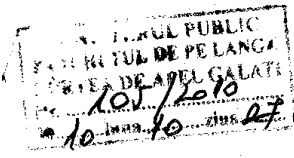 UL PUBLIC
UL DE PE LANGA
TEA DE APEL GALATI
105/2010
10 luna 10 ziua 27